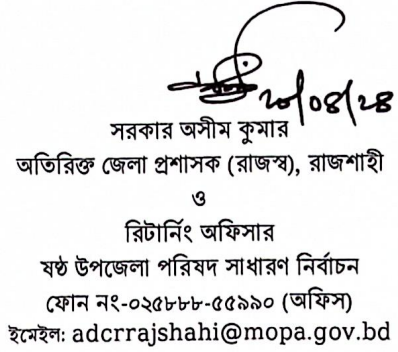 ২০/০৪/২৪
সরকার অসীম কুমার
অতিরিক্ত জেলা প্রশাসক (রাজস্ব), রাজশাহী
ও
রিটার্নিং অফিসার
ষষ্ঠ উপজেলা পরিষদ সাধারণ নির্বাচন
ফোন নং-০২৫৮৮৮-৫৫৯৯০ (অফিস)
ইমেইল: adcrrajshahi@mopa.gov.bd